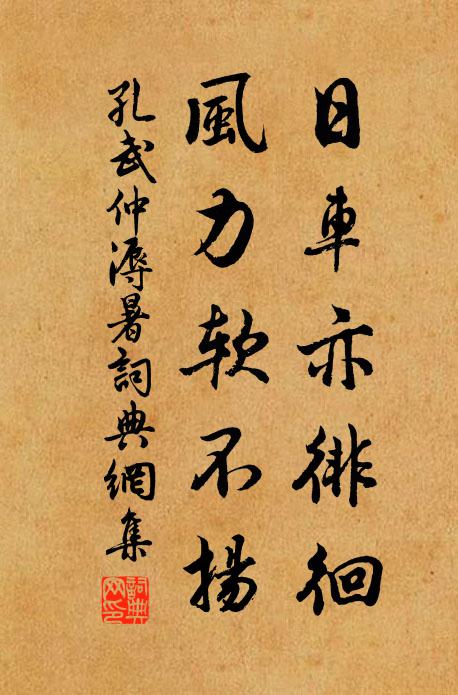 日車亦徘徊
風力軟不揚
孔武仲溽暑詞典網集
詞典網印